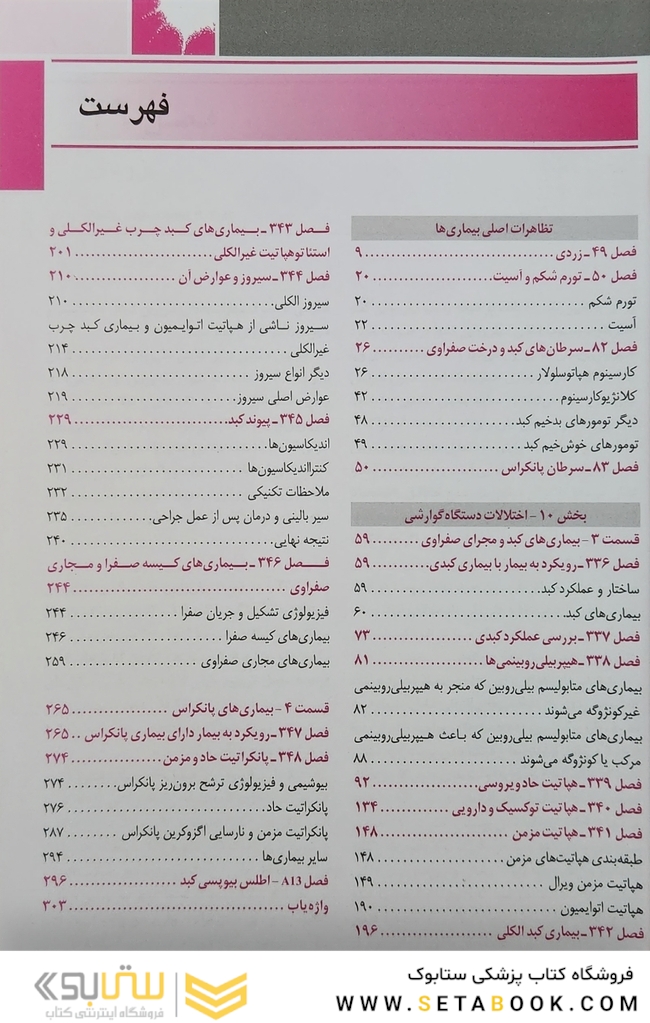 فهرست
تظاهرات اصلی بیماری‌ها
فصل ۴۹ ـ زردی ........ ۹
فصل ۵۰ ـ تورم شکم و آسیت ........ ۲۰
تورم شکم ........ ۲۰
آسیت ........ ۲۲
فصل ۸۲ ـ سرطان‌های کبد و درخت صفراوی ........ ۲۶
کارسینوم هپاتوسلولار ........ ۲۶
کلانژیوکارسینوم ........ ۴۲
دیگر تومورهای بدخیم کبد ........ ۴۸
تومورهای خوش‌خیم کبد ........ ۴۹
فصل ۸۳ ـ سرطان پانکراس ........ ۵۰
بخش ۱۰ – اختلالات دستگاه گوارشی
قسمت ۳ – بیماری‌های کبد و مجرای صفراوی ........ ۵۹
فصل ۳۳۶ ـ رویکرد به بیمار با بیماری کبدی ........ ۵۹
ساختار و عملکرد کبد ........ ۵۹
بیماری‌های کبد ........ ۶۰
فصل ۳۳۷ ـ بررسی عملکرد کبدی ........ ۷۳
فصل ۳۳۸ ـ هیپربیلی‌روبینمی‌ها ........ ۸۱
بیماری‌های متابولیسم بیلی‌روبین که منجر به هیپربیلی‌روبینمی
غیرکونژوگه می‌شوند ........ ۸۲
بیماری‌های متابولیسم بیلی‌روبین که باعث هیپربیلی‌روبینمی
مرکب یا کونژوگه می‌شوند ........ ۸۸
فصل ۳۳۹ ـ هپاتیت حاد ویروسی ........ ۹۲
فصل ۳۴۰ ـ هپاتیت توکسیک و دارویی ........ ۱۳۴
فصل ۳۴۱ ـ هپاتیت مزمن ........ ۱۴۸
طبقه‌بندی هپاتیت‌های مزمن ........ ۱۴۸
هپاتیت مزمن ویرال ........ ۱۴۹
هپاتیت اتوایمیون ........ ۱۹۰
فصل ۳۴۲ ـ بیماری کبد الکلی ........ ۱۹۶
فصل ۳۴۳ ـ بیماری‌های کبد چرب غیرالکلی و
استئاتوهپاتیت غیرالکلی ........ ۲۰۱
فصل ۳۴۴ ـ سیروز و عوارض آن ........ ۲۱۰
سیروز الکلی ........ ۲۱۰
سیروز ناشی از هپاتیت اتوایمیون و بیماری کبد چرب
غیرالکلی ........ ۲۱۴
دیگر انواع سیروز ........ ۲۱۸
عوارض اصلی سیروز ........ ۲۱۹
فصل ۳۴۵ ـ پیوند کبد ........ ۲۲۹
اندیکاسیون‌ها ........ ۲۲۹
کنترااندیکاسیون‌ها ........ ۲۳۱
ملاحظات تکنیکی ........ ۲۳۲
سیر بالینی و درمان پس از عمل جراحی ........ ۲۳۵
نتیجه نهایی ........ ۲۴۰
فصل ۳۴۶ ـ بیماری‌های کیسه صفرا و مجاری
صفراوی ........ ۲۴۴
فیزیولوژی تشکیل و جریان صفرا ........ ۲۴۴
بیماری‌های کیسه صفرا ........ ۲۴۶
بیماری‌های مجاری صفراوی ........ ۲۵۹
قسمت ۴ – بیماری‌های پانکراس ........ ۲۶۵
فصل ۳۴۷ ـ رویکرد به بیمار دارای بیماری پانکراس .. ۲۶۵
فصل ۳۴۸ ـ پانکراتیت حاد و مزمن ........ ۲۷۴
بیوشیمی و فیزیولوژی ترشح برون‌ریز پانکراس ........ ۲۷۴
پانکراتیت حاد ........ ۲۷۶
پانکراتیت مزمن و نارسایی اگزوکرین پانکراس ........ ۲۸۷
سایر بیماری‌ها ........ ۲۹۴
فصل A13 – اطلس بیوپسی کبد ........ ۲۹۶
واژه‌یاب ........ ۳۰۳
فروشگاه کتاب پزشکی ستابوک
WWW.SETABOOK.COM
ستابوک
فروشگاه اینترنتی کتاب